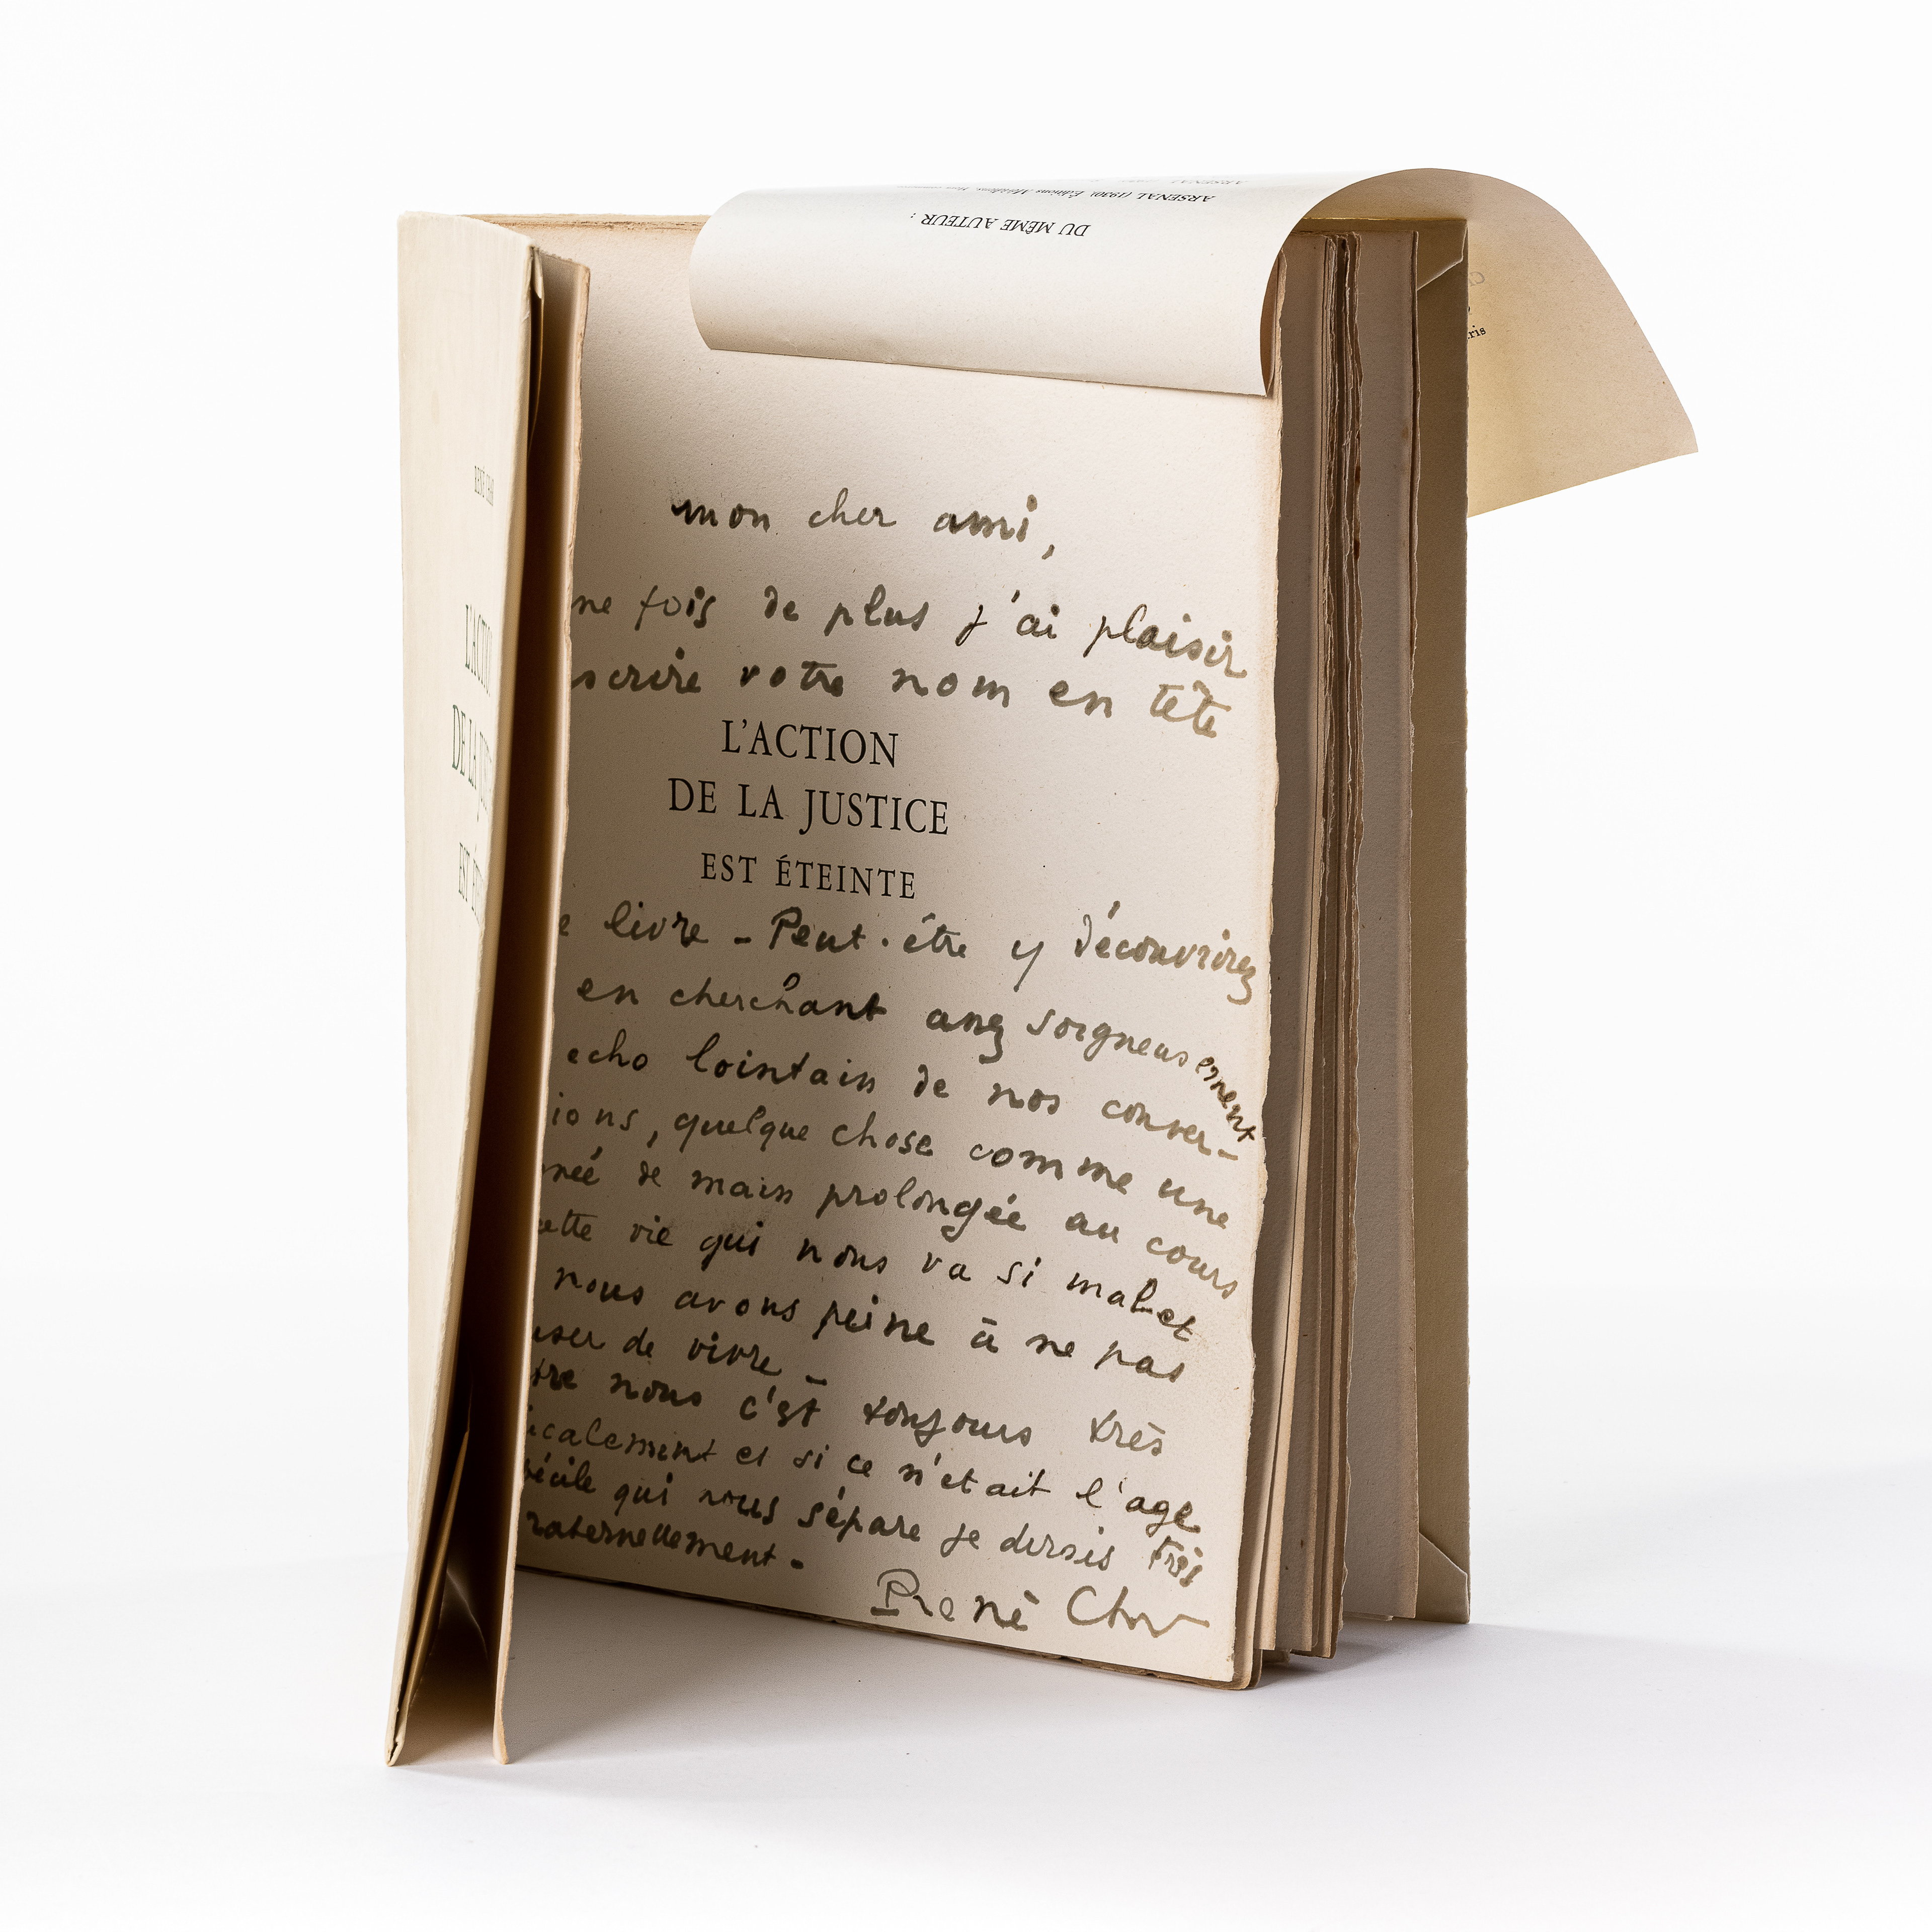 DU MÊME AUTEUR :
ARSENAL (1930). Éditions
ris
RENÉ CHAR
L'ACTION
DE LA JUST
EST ÉT
mon cher ami,
ne fois de plus j'ai plaisir
scrire votre nom en tête
L'ACTION
DE LA JUSTICE
EST ÉTEINTE
e livre - Peut-être y découvrirez
en cherchant assez soigneusement
echo lointain de nos conver-
ions, quelque chose comme une
née de main prolongée au cours
cette vie qui nous va si mal et
nous avons peine à ne pas
user de vivre -
tre nous c'est toujours très
icalement et si ce n'etait l'age
bécile qui nous sépare je dirais très
raternellement -
René Char